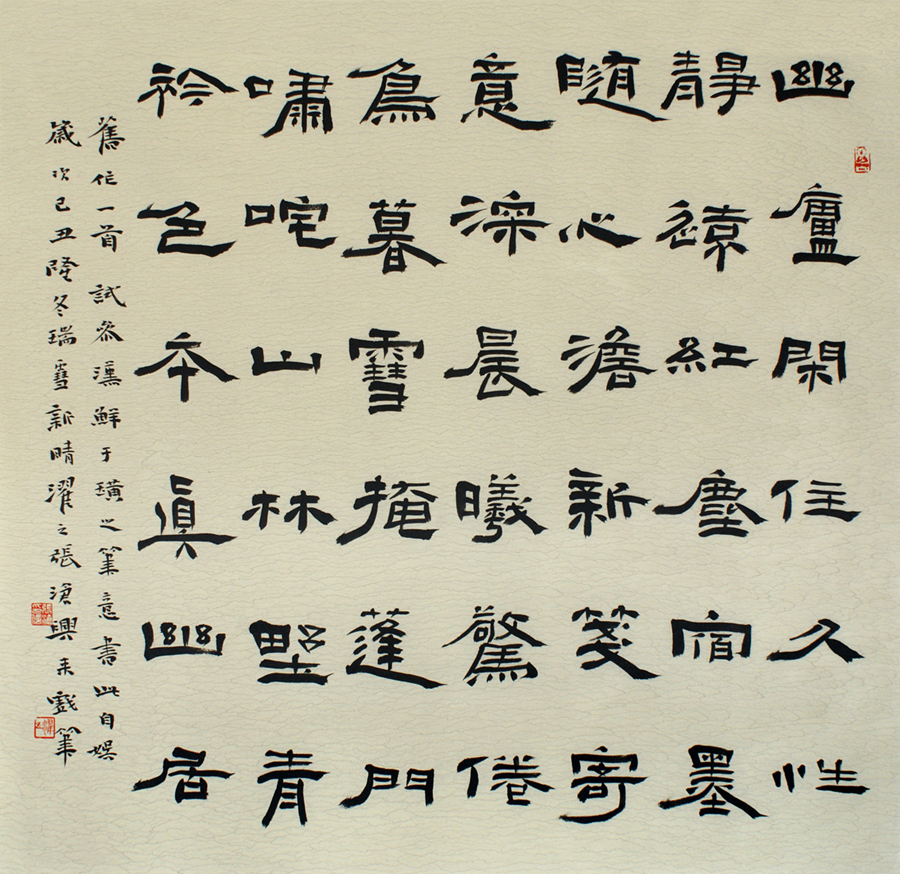 幽廬閑住久性
靜遠紅塵宿墨
隨心澹新箋寄
意深晨曦驚倦
鳥暮雪掩蓬門
嘯咤山林野青
衿色本真幽居
舊作一首試參漢鮮于璜之筆意書此自娛
歲次己丑隆冬瑞雪新晴濯之張滄興來戲筆